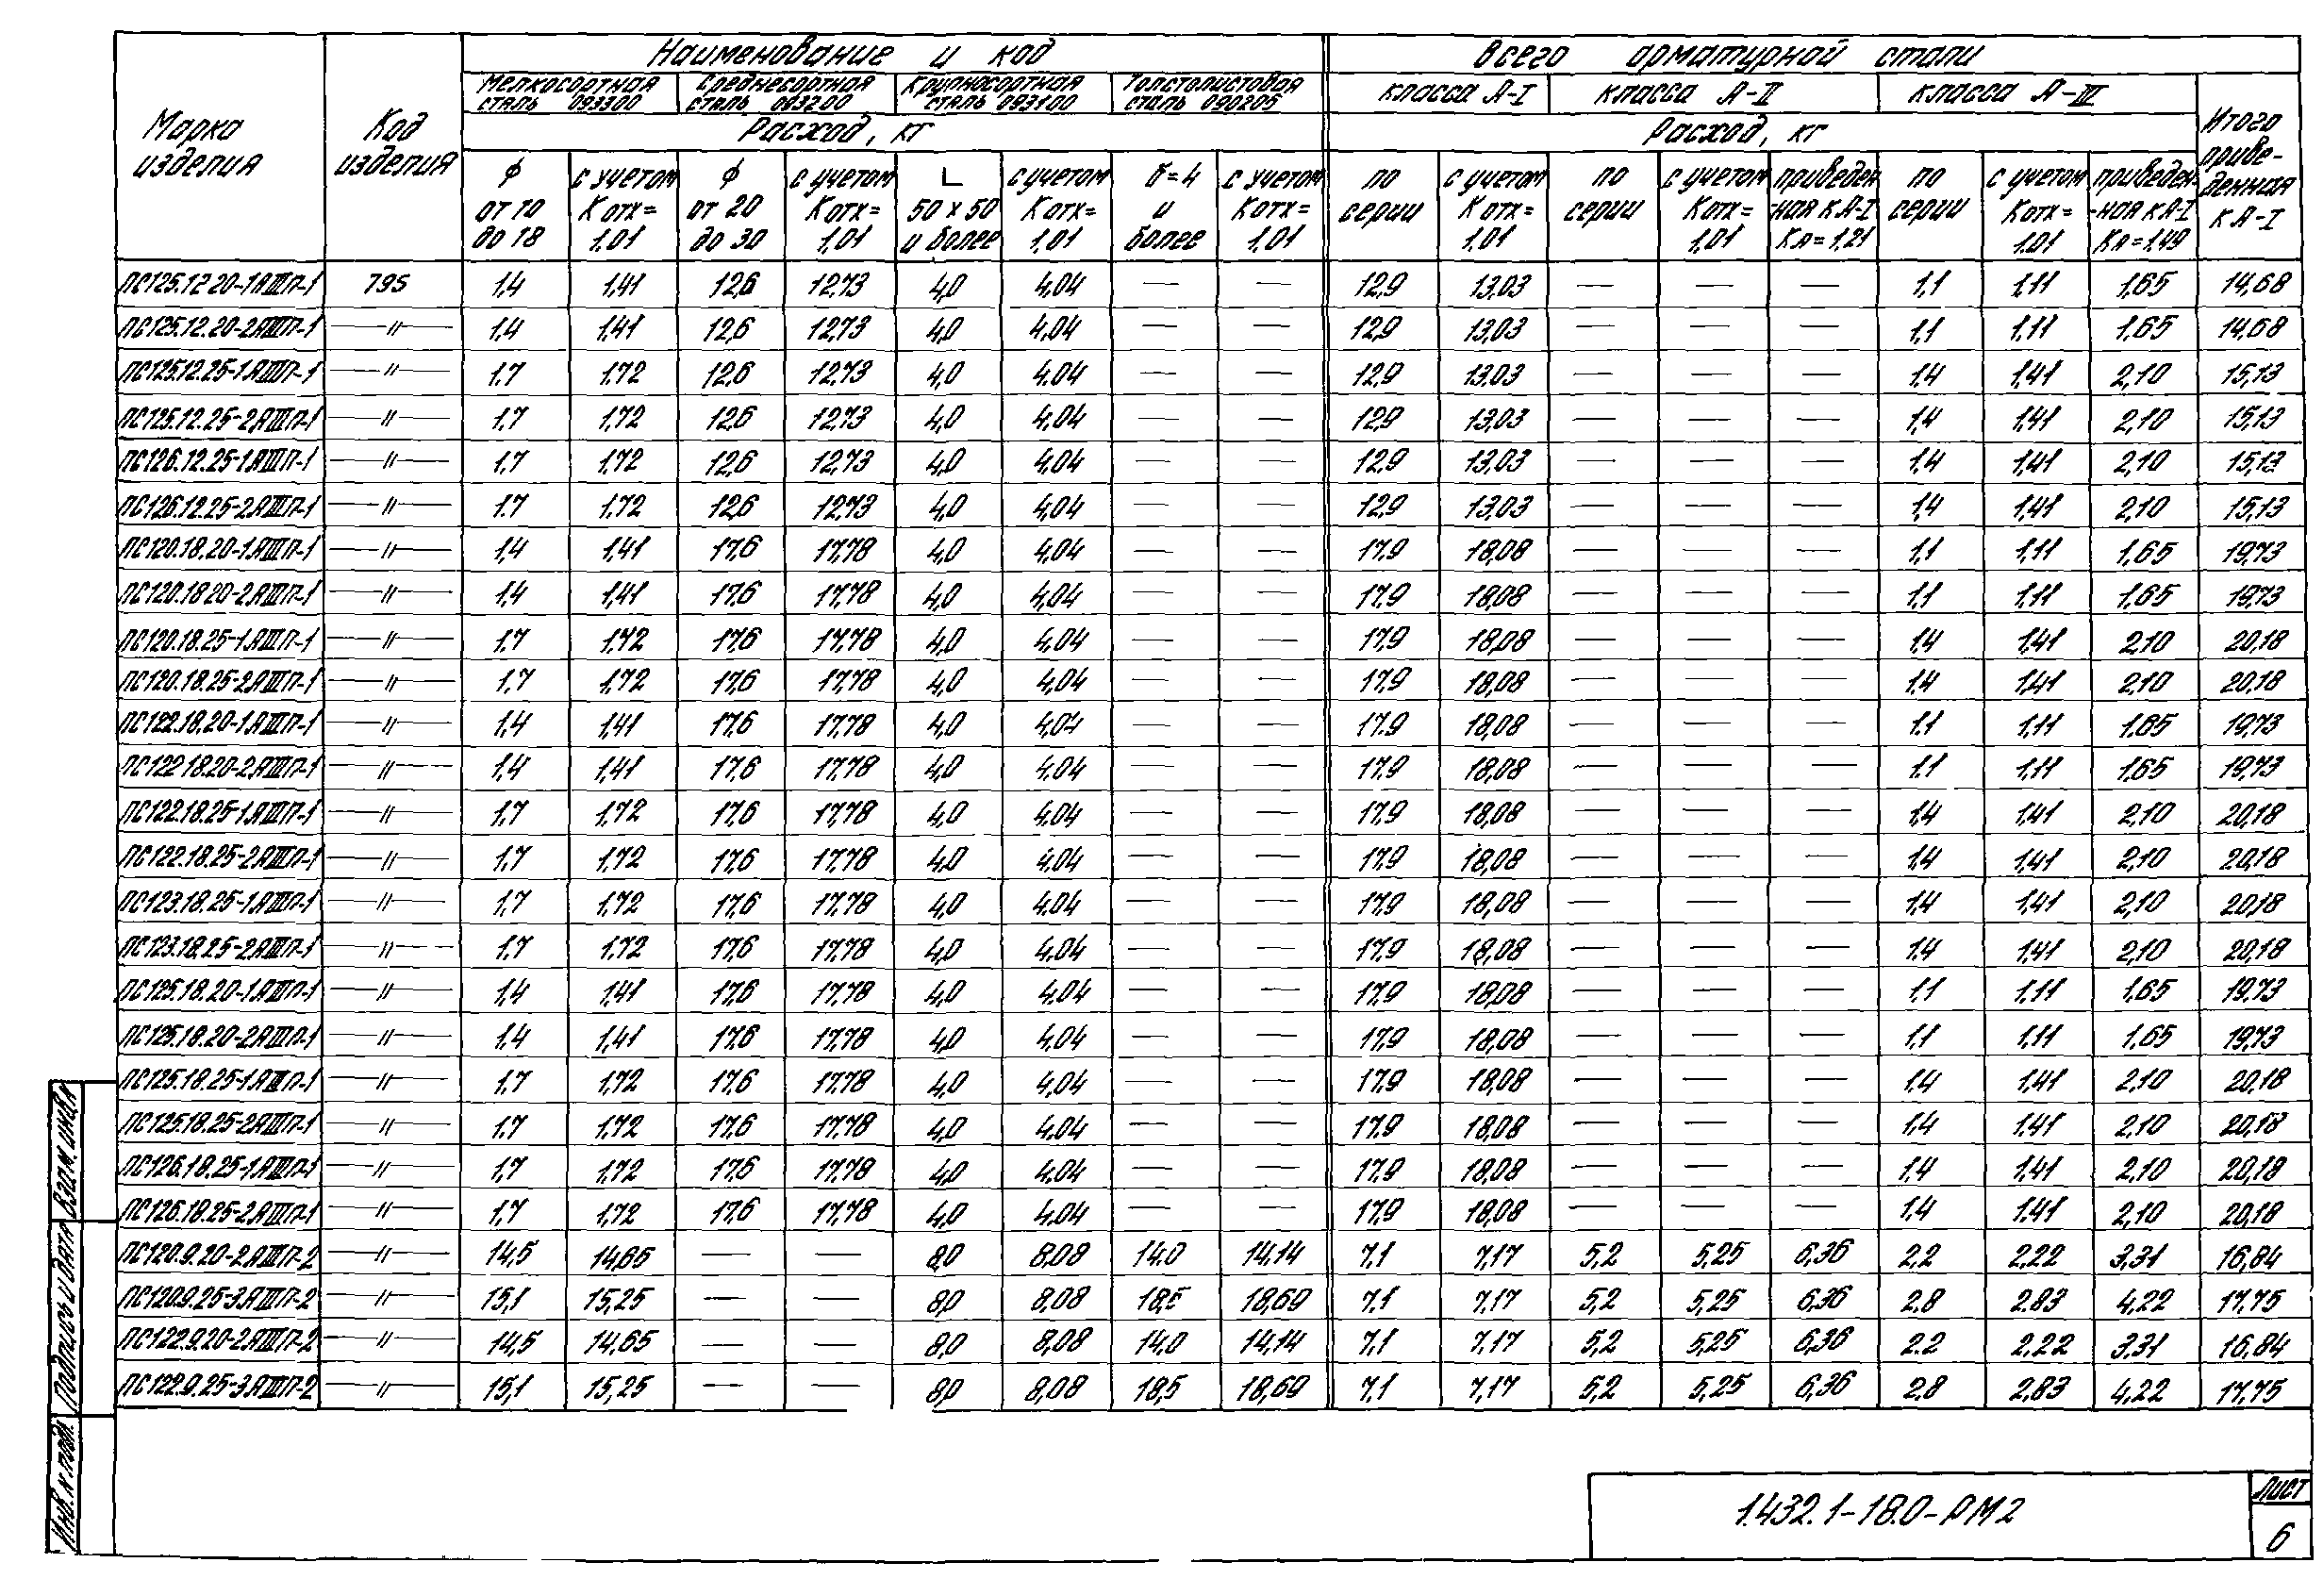 Наименование и код Всего арматурной стали
Марка изделия Код изделия Мелкосортная сталь 093300 Среднесортная сталь 093200 Крупносортная сталь 093100 Толстолистовая сталь 090205 класса А-I класса А-II класса А-III Итого приведенная к А-I
Расход, кг Расход, кг
ϕ от 10 до 18 с учетом Котх= 1,01 ϕ от 20 до 30 с учетом Котх= 1,01 ∟ 50×50 и более с учетом Котх= 1,01 б=4 и более с учетом Котх= 1,01 по серии с учетом Котх= 1,01 по серии с учетом Котх= 1,01 приведен-ная к А-I Кп=1,21 по серии с учетом Котх= 1,01 приведен-ная к А-I Кп=1,49
ПС125.12.20-1АIIIП-1 795 1,4 1,41 12,6 12,73 4,0 4,04 — — 12,9 13,03 — — — 1,1 1,11 1,65 14,68
ПС125.12.20-2АIIIП-1 —〃— 1,4 1,41 12,6 12,73 4,0 4,04 — — 12,9 13,03 — — — 1,1 1,11 1,65 14,68
ПС125.12.25-1АIIIП-1 —〃— 1,7 1,72 12,6 12,73 4,0 4,04 — — 12,9 13,03 — — — 1,4 1,41 2,10 15,13
ПС125.12.25-2АIIIП-1 —〃— 1,7 1,72 12,6 12,73 4,0 4,04 — — 12,9 13,03 — — — 1,4 1,41 2,10 15,13
ПС126.12.25-1АIIIП-1 —〃— 1,7 1,72 12,6 12,73 4,0 4,04 — — 12,9 13,03 — — — 1,4 1,41 2,10 15,13
ПС126.12.25-2АIIIП-1 —〃— 1,7 1,72 12,6 12,73 4,0 4,04 — — 12,9 13,03 — — — 1,4 1,41 2,10 15,13
ПС120.18.20-1АIIIП-1 —〃— 1,4 1,41 17,6 17,78 4,0 4,04 — — 17,9 18,08 — — — 1,1 1,11 1,65 19,73
ПС120.18.20-2АIIIП-1 —〃— 1,4 1,41 17,6 17,78 4,0 4,04 — — 17,9 18,08 — — — 1,1 1,11 1,65 19,73
ПС120.18.25-1АIIIП-1 —〃— 1,7 1,72 17,6 17,78 4,0 4,04 — — 17,9 18,08 — — — 1,4 1,41 2,10 20,18
ПС120.18.25-2АIIIП-1 —〃— 1,7 1,72 17,6 17,78 4,0 4,04 — — 17,9 18,08 — — — 1,4 1,41 2,10 20,18
ПС122.18.20-1АIIIП-1 —〃— 1,4 1,41 17,6 17,78 4,0 4,04 — — 17,9 18,08 — — — 1,1 1,11 1,65 19,73
ПС122.18.20-2АIIIП-1 —〃— 1,4 1,41 17,6 17,78 4,0 4,04 — — 17,9 18,08 — — — 1,1 1,11 1,65 19,73
ПС122.18.25-1АIIIП-1 —〃— 1,7 1,72 17,6 17,78 4,0 4,04 — — 17,9 18,08 — — — 1,4 1,41 2,10 20,18
ПС122.18.25-2АIIIП-1 —〃— 1,7 1,72 17,6 17,78 4,0 4,04 — — 17,9 18,08 — — — 1,4 1,41 2,10 20,18
ПС123.18.25-1АIIIП-1 —〃— 1,7 1,72 17,6 17,78 4,0 4,04 — — 17,9 18,08 — — — 1,4 1,41 2,10 20,18
ПС123.18.25-2АIIIП-1 —〃— 1,7 1,72 17,6 17,78 4,0 4,04 — — 17,9 18,08 — — — 1,4 1,41 2,10 20,18
ПС125.18.20-1АIIIП-1 —〃— 1,4 1,41 17,6 17,78 4,0 4,04 — — 17,9 18,08 — — — 1,1 1,11 1,65 19,73
ПС125.18.20-2АIIIП-1 —〃— 1,4 1,41 17,6 17,78 4,0 4,04 — — 17,9 18,08 — — — 1,1 1,11 1,65 19,73
ПС125.18.25-1АIIIП-1 —〃— 1,7 1,72 17,6 17,78 4,0 4,04 — — 17,9 18,08 — — — 1,4 1,41 2,10 20,18
ПС125.18.25-2АIIIП-1 —〃— 1,7 1,72 17,6 17,78 4,0 4,04 — — 17,9 18,08 — — — 1,4 1,41 2,10 20,18
ПС126.18.25-1АIIIП-1 —〃— 1,7 1,72 17,6 17,78 4,0 4,04 — — 17,9 18,08 — — — 1,4 1,41 2,10 20,18
ПС126.18.25-2АIIIП-1 —〃— 1,7 1,72 17,6 17,78 4,0 4,04 — — 17,9 18,08 — — — 1,4 1,41 2,10 20,18
ПС120.9.20-2АIIIП-2 —〃— 14,5 14,65 — — 8,0 8,08 14,0 14,14 7,1 7,17 5,2 5,25 6,36 2,2 2,22 3,31 16,84
ПС120.9.25-3АIIIП-2 —〃— 15,1 15,25 — — 8,0 8,08 18,5 18,69 7,1 7,17 5,2 5,25 6,36 2,8 2,83 4,22 17,75
ПС122.9.20-2АIIIП-2 —〃— 14,5 14,65 — — 8,0 8,08 14,0 14,14 7,1 7,17 5,2 5,25 6,36 2,2 2,22 3,31 16,84
ПС122.9.25-3АIIIП-2 —〃— 15,1 15,25 — — 8,0 8,08 18,5 18,69 7,1 7,17 5,2 5,25 6,36 2,8 2,83 4,22 17,75
Взам. инв. №
Подпись и дата
Инв. № подл.
1.432.1-18.0-РМ2
Лист
6